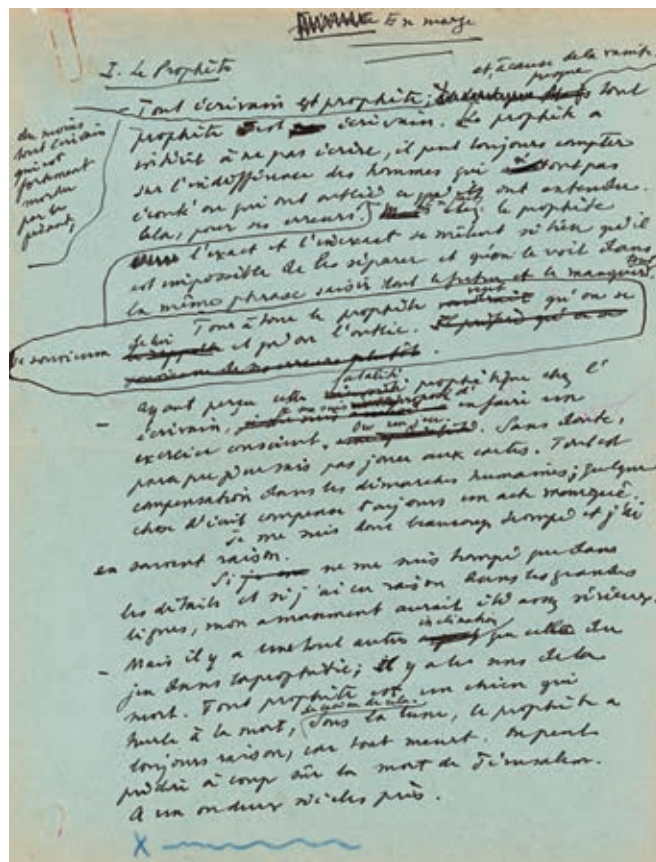 En marge
I. Le Prophète
et, à cause de la vanité
propre
- Tout écrivain est prophète; tout
du moins
tout écrivain
qui est
fortement
mordu
par le
présent,
prophète est écrivain. Le prophète a
intérêt à ne pas écrire, il peut toujours compter
sur l'indifférence des hommes qui ont pas
écouté ou qui ont oublié ce qu'ils ont entendu.
le prophète
l'exact et l'inexact se mêlent si bien qu'il
est impossible de les séparer et qu'on le voit dans
la même phrase saisir tout le futur et le manquer.
tout
Tour à tour le prophète veut qu'on se
souvienne de lui et qu'on l'oublie.
fatalité
- Ayant perçu cette prophétique chez l'
écrivain, je me suis d'en faire un
exercice conscient, ou un jeu. Sans doute,
parce que je ne sais pas jouer aux cartes. Tout est
compensation dans les démarches humaines; quelque
chose d'écrit compense toujours un acte manqué.
Je me suis donc beaucoup trompé et j'ai
eu souvent raison.
Si je ne me suis trompé que dans
les détails et si j'ai eu raison dans les grandes
lignes, mon amusement aurait été assez sérieux.
- Mais il y a une tout autre inclination que celle du
jeu dans la prophétie; il y a le sens de la
mort. Tout prophète est un chien qui
hurle à la mort, sous la lune, le prophète a
toujours raison, car tout meurt. On peut
prédire à coup sûr la mort de Jérusalem.
A un ou deux siècles près.
X